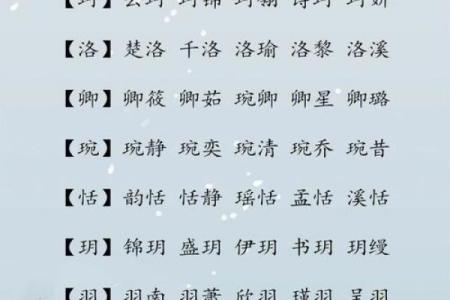 【洛】楚洛 千洛 洛瑜 洛黎 洛溪
【卿】卿筱 卿茹 琬卿 卿星 卿璐
【琬】琬静 琬奕 琬清 琬乔 琬昔
【恬】韵恬 恬静 瑶恬 孟恬 溪恬
【玥】锦玥 盛玥 伊玥 书玥 玥缦
【羽】羽南 羽萧 欣羽 瑾羽 昊羽